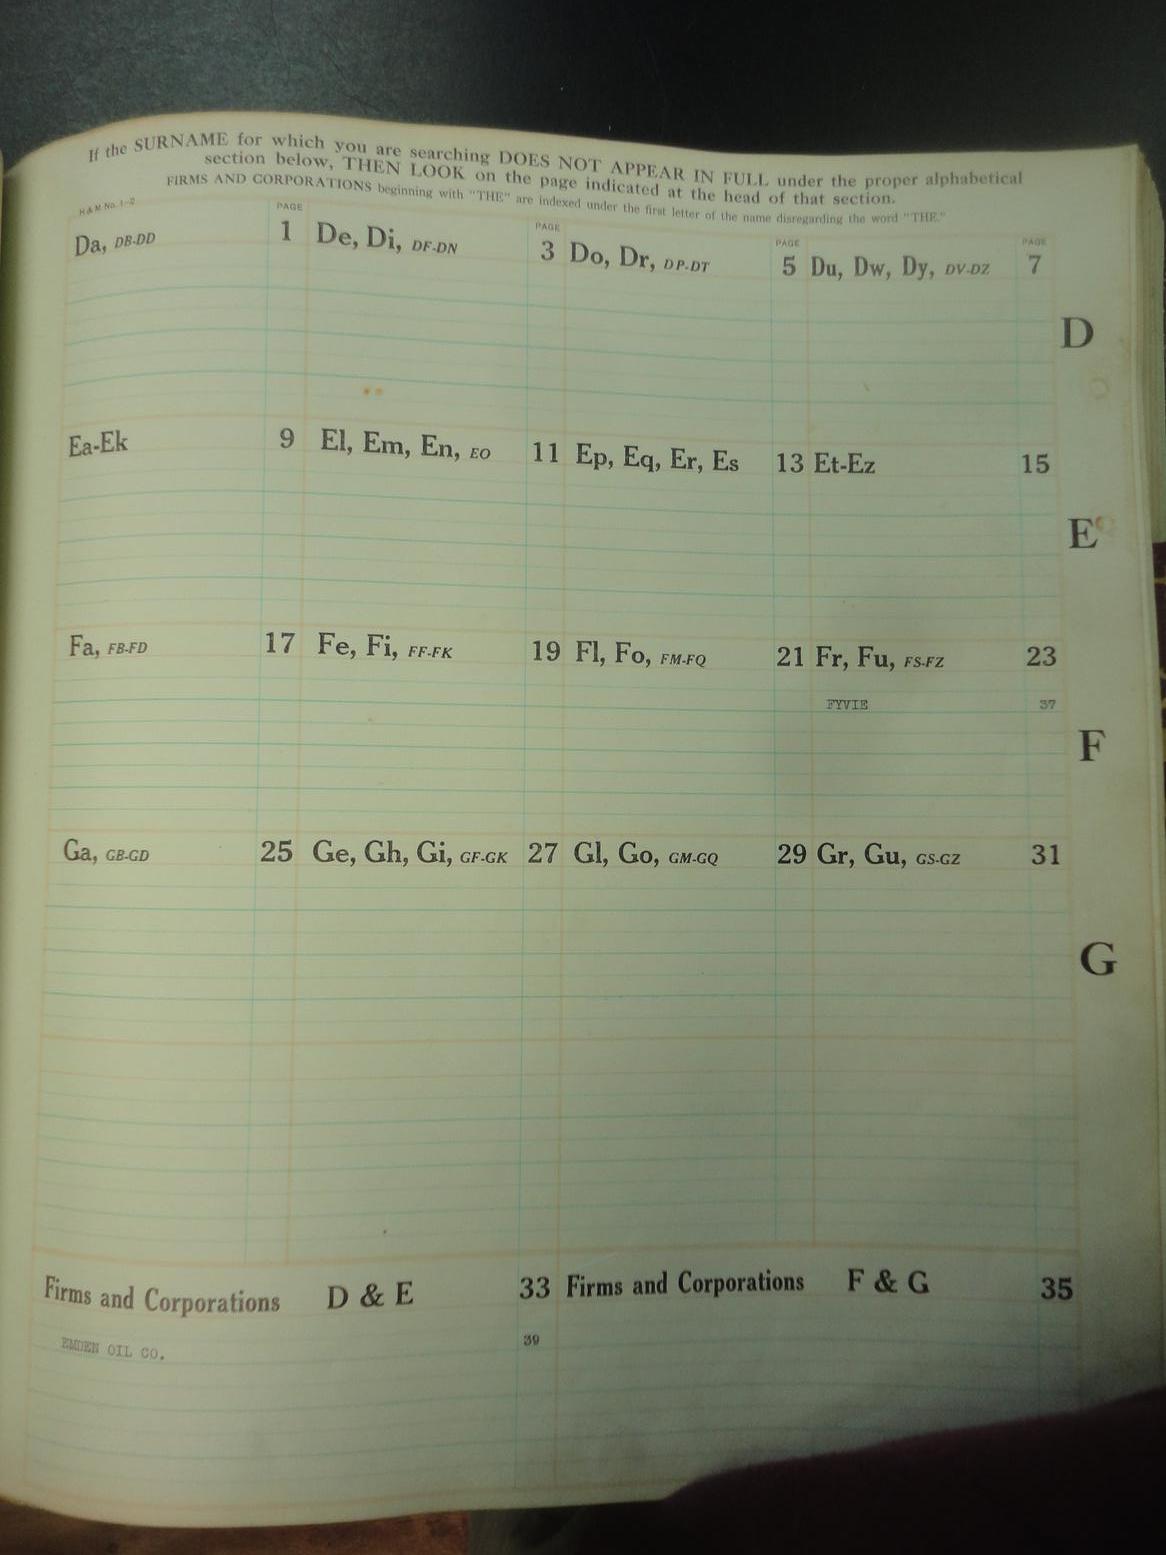 If the SURNAME for which you are searching DOES NOT APPEAR IN FULL under the proper alphabetical
section below, THEN LOOK on the page indicated at the head of that section.
FIRMS AND CORPORATIONS beginning with "THE" are indexed under the first letter of the name disregarding the word "THE."
H & M No. 1-2 PAGE PAGE PAGE PAGE
Da, DB-DD 1 De, Di, DF-DN 3 Do, Dr, DP-DT 5 Du, Dw, Dy, DV-DZ 7
D
Ea-Ek 9 El, Em, En, EO 11 Ep, Eq, Er, Es 13 Et-Ez 15
E
Fa, FB-FD 17 Fe, Fi, FF-FK 19 Fl, Fo, FM-FQ 21 Fr, Fu, FS-FZ 23
FYVIE 37
F
Ga, GB-GD 25 Ge, Gh, Gi, GF-GK 27 Gl, Go, GM-GQ 29 Gr, Gu, GS-GZ 31
G
Firms and Corporations D & E 33 Firms and Corporations F & G 35
EMDEN OIL CO. 39